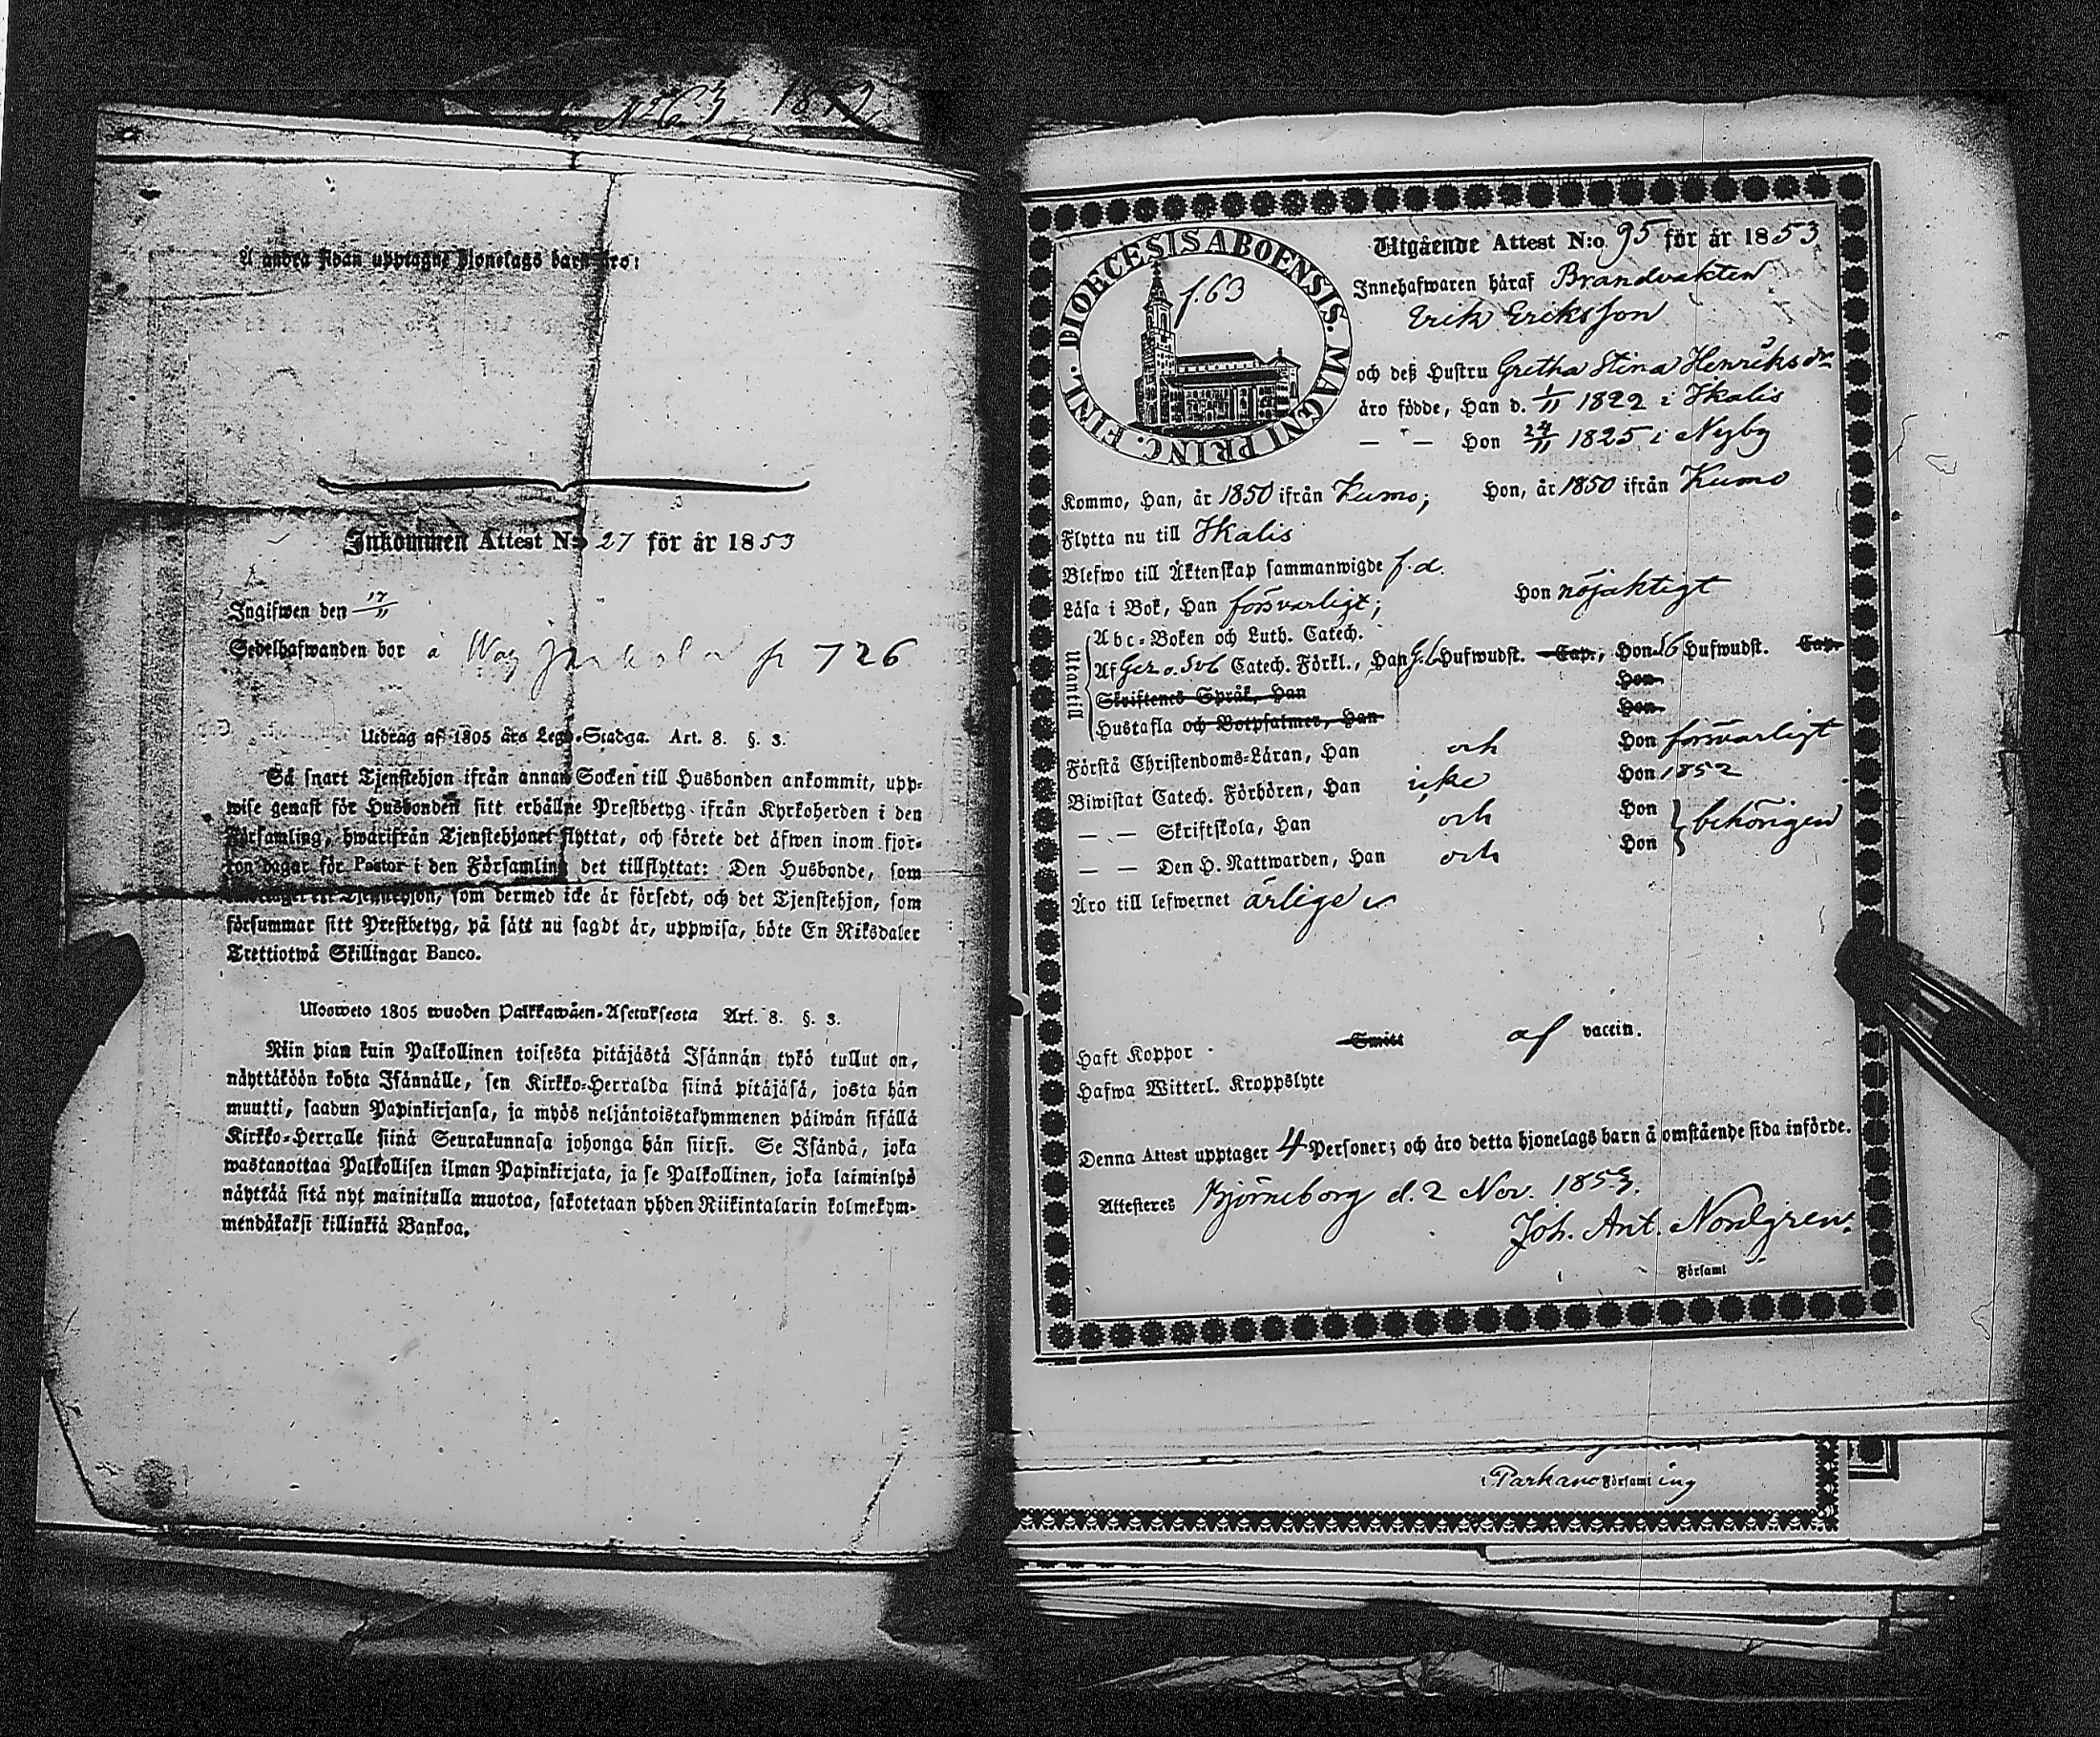 No 63 1852
Å andra sidan upptagne hjonelags barn äro:
Inkommen Attest No 27 för år 1853
Ingifwen den 17/11
Sedelhafwanden bor å 726
Utdrag af 1805 års Lego-Stadga. Art. 8. §. 3.
Så snart Tjenstehjon ifrån annan Socken till Husbonden ankommit, upp-
wise genast för Husbonden sitt erhållne Prestbetyg ifrån Kyrkoherden i den
Församling, hwarifrån Tjenstehjonet flyttat, och förete det äfwen inom fjor-
ton dagar för Pastor i den Församling det tillflyttat: Den Husbonde, som
Tjenstehjon, som dermed icke är försedt, och det Tjenstehjon, som
försummar sitt Prestbetyg, på sätt nu sagdt är, uppwisa, böte En Riksdaler
Trettiotwå Skillingar Banco.
Ulosweto 1805 wuoden Palkkawäen-Asetuksesta Art. 8. §. 3.
Niin pian kuin Palkollinen toisesta pitäjästä Isännän tykö tullut on,
näyttäköön kohta Isännälle, sen Kirkko-Herralda siinä pitäjäsä, josta hän
muutti, saadun Papinkirjansa, ja myös neljäntoistakymmenen päiwän sisällä
Kirkko-Herralle siinä Seurakunnasa johonga hän siirsi. Se Isändä, joka
wastanottaa Palkollisen ilman Papinkirjata, ja se Palkollinen, joka laiminlyö
näyttää sitä nyt mainitulla muotoa, sakotetaan yhden Riikintalarin kolmekym-
mendäkaksi killinkiä Bankoa.
DIOECESIS ABOENSIS. MAGNI PRINC. FINL.
f. 63
Utgående Attest N:o 95 för år 1853
Innehafwaren häraf Brandvakten
Erik Eriksson
och deß Hustru Gretha Stina Henriksdr
äro födde, Han d. 1/11 1822 i Ikalis
— " — Hon 24/11 1825 i Nyby
Kommo, Han, år 1850 ifrån Kumo; Hon, år 1850 ifrån Kumo
Flytta nu till Ikalis
Blefwo till Äktenskap sammanwigde f. d.
Läsa i Bok, Han försvarligt; Hon nöjaktigt
Utantill
Abc-Boken och Luth. Catech.
Af Gez. o. Svb Catech. Förkl., Han G. 6 Hufwudst. Cap., Hon 6 Hufwudst. Cap.
Skriftenes Språk, Han Hon
Hustafla och Botpsalmer, Han Hon
Förstå Christendoms-Läran, Han och Hon försvarligt
Biwistat Catech. Förhören, Han icke Hon 1852
— — Skriftskola, Han och Hon } behörigen
— — Den H. Nattwarden, Han och Hon
Äro till lefwernet ärlige
Haft Koppor Smitt af vaccin.
Hafwa Witterl. Kroppslyte
Denna Attest upptager 4 Personer; och äro detta hjonelags barn å omstående sida införde.
Attesteres Björneborg d. 2 Nov. 1853.
Joh. Ant. Nordgren.
Församl
i Parkano Församling